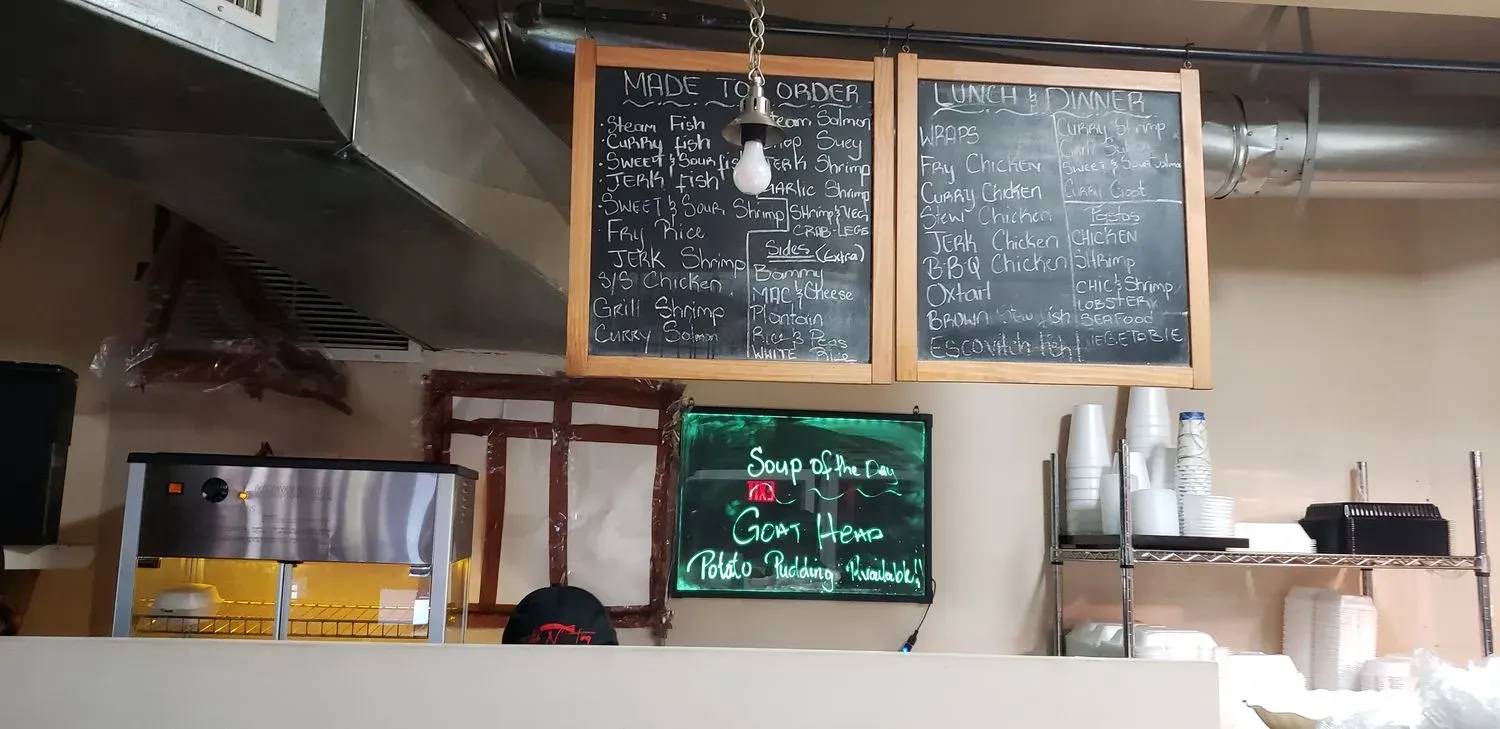 MADE TO ORDER
• Steam Fish
• Curry fish
• Sweet & Sour fish
• JERK fish
• Sweet & Sour Shrimp
Fry Rice
JERK Shrimp
S/S Chicken
Grill Shrimp
Curry Salmon
Salmon
Suey
JERK Shrimp
Garlic Shrimp
Shrimp & Veg
CRAB-LEGS
Sides (Extra)
Bammy
MAC & Cheese
Plantain
Rice & Peas
WHITE Rice
LUNCH & DINNER
WRAPS
Fry Chicken
Curry Chicken
Stew Chicken
JERK Chicken
B·B·Q Chicken
Oxtail
BROWN Stew fish
ESCOVITCH fish
Curry Shrimp
Sweet & Sour Salmon
Curry Goat
Pastas
CHICKEN
SHRIMP
CHIC & Shrimp
LOBSTER
SEAFOOD
VEGETABLE
Soup of the Day
GOAT HEAD
Potato Pudding Available!!